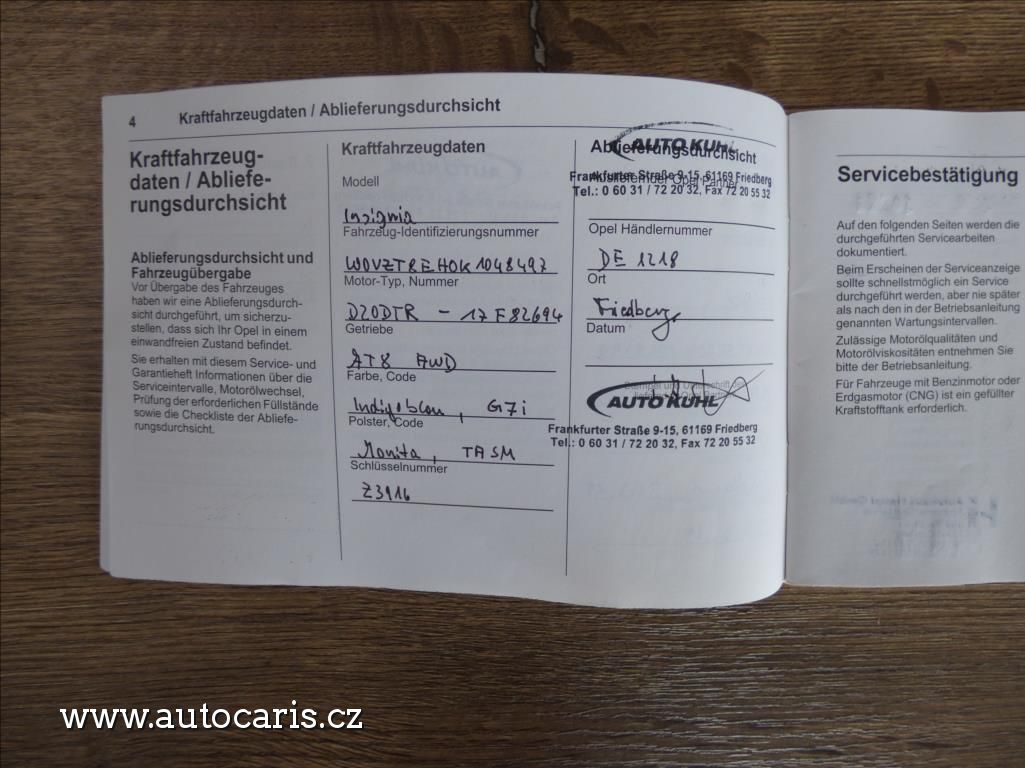 4 Kraftfahrzeugdaten / Ablieferungsdurchsicht
Kraftfahrzeug-
daten / Abliefe-
rungsdurchsicht
Ablieferungsdurchsicht und
Fahrzeugübergabe
Vor Übergabe des Fahrzeuges
haben wir eine Ablieferungsdurch-
sicht durchgeführt, um sicherzu-
stellen, dass sich Ihr Opel in einem
einwandfreien Zustand befindet.
Sie erhalten mit diesem Service- und
Garantieheft Informationen über die
Serviceintervalle, Motorölwechsel,
Prüfung der erforderlichen Füllstände
sowie die Checkliste der Abliefe-
rungsdurchsicht.
Kraftfahrzeugdaten
Modell
Insignia
Fahrzeug-Identifizierungsnummer
W0VZTREHOK1048497
Motor-Typ, Nummer
D20DTR - 17F82694
Getriebe
AT8 AWD
Farbe, Code
Indigoblau, G7i
Polster, Code
Monita, TASM
Schlüsselnummer
Z3916
Ablieferungsdurchsicht
AUTO KUHL
Frankfurter Straße 9-15, 61169 Friedberg
Tel.: 0 60 31 / 72 20 32, Fax 72 20 55 32
Opel Händlernummer
DE 1218
Ort
Friedberg
Datum
AUTO KUHL
Frankfurter Straße 9-15, 61169 Friedberg
Tel.: 0 60 31 / 72 20 32, Fax 72 20 55 32
Servicebestätigung
Auf den folgenden Seiten werden die
durchgeführten Servicearbeiten
dokumentiert.
Beim Erscheinen der Serviceanzeige
sollte schnellstmöglich ein Service
durchgeführt werden, aber nie später
als nach den in der Betriebsanleitung
genannten Wartungsintervallen.
Zulässige Motorölqualitäten und
Motorölviskositäten entnehmen Sie
bitte der Betriebsanleitung.
Für Fahrzeuge mit Benzinmotor oder
Erdgasmotor (CNG) ist ein gefüllter
Kraftstofftank erforderlich.
www.autocaris.cz